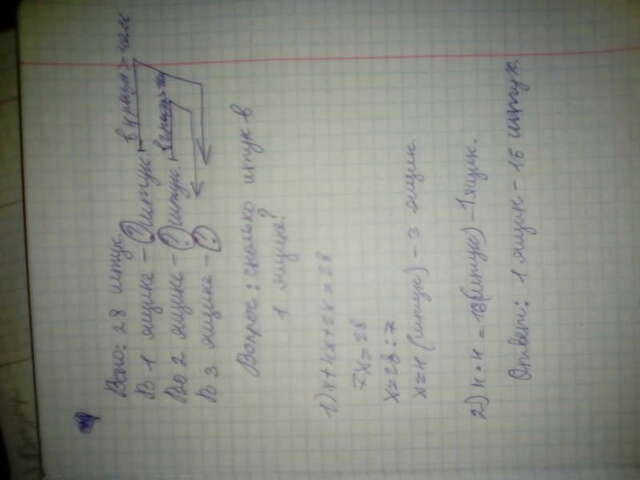 Всего: 28 штук
В 1 ящике - ? штук, в 4 раза > чем
Во 2 ящике - ? штук, в
В 3 ящике - ?
Вопрос: сколько штук в
1 ящике?
1) x+4x+2x=28
7x=28
x=28:7
x=4 (штук) - 3 ящик
2) 4·4=16(штук) - 1 ящик.
Ответ: 1 ящик - 16 штук